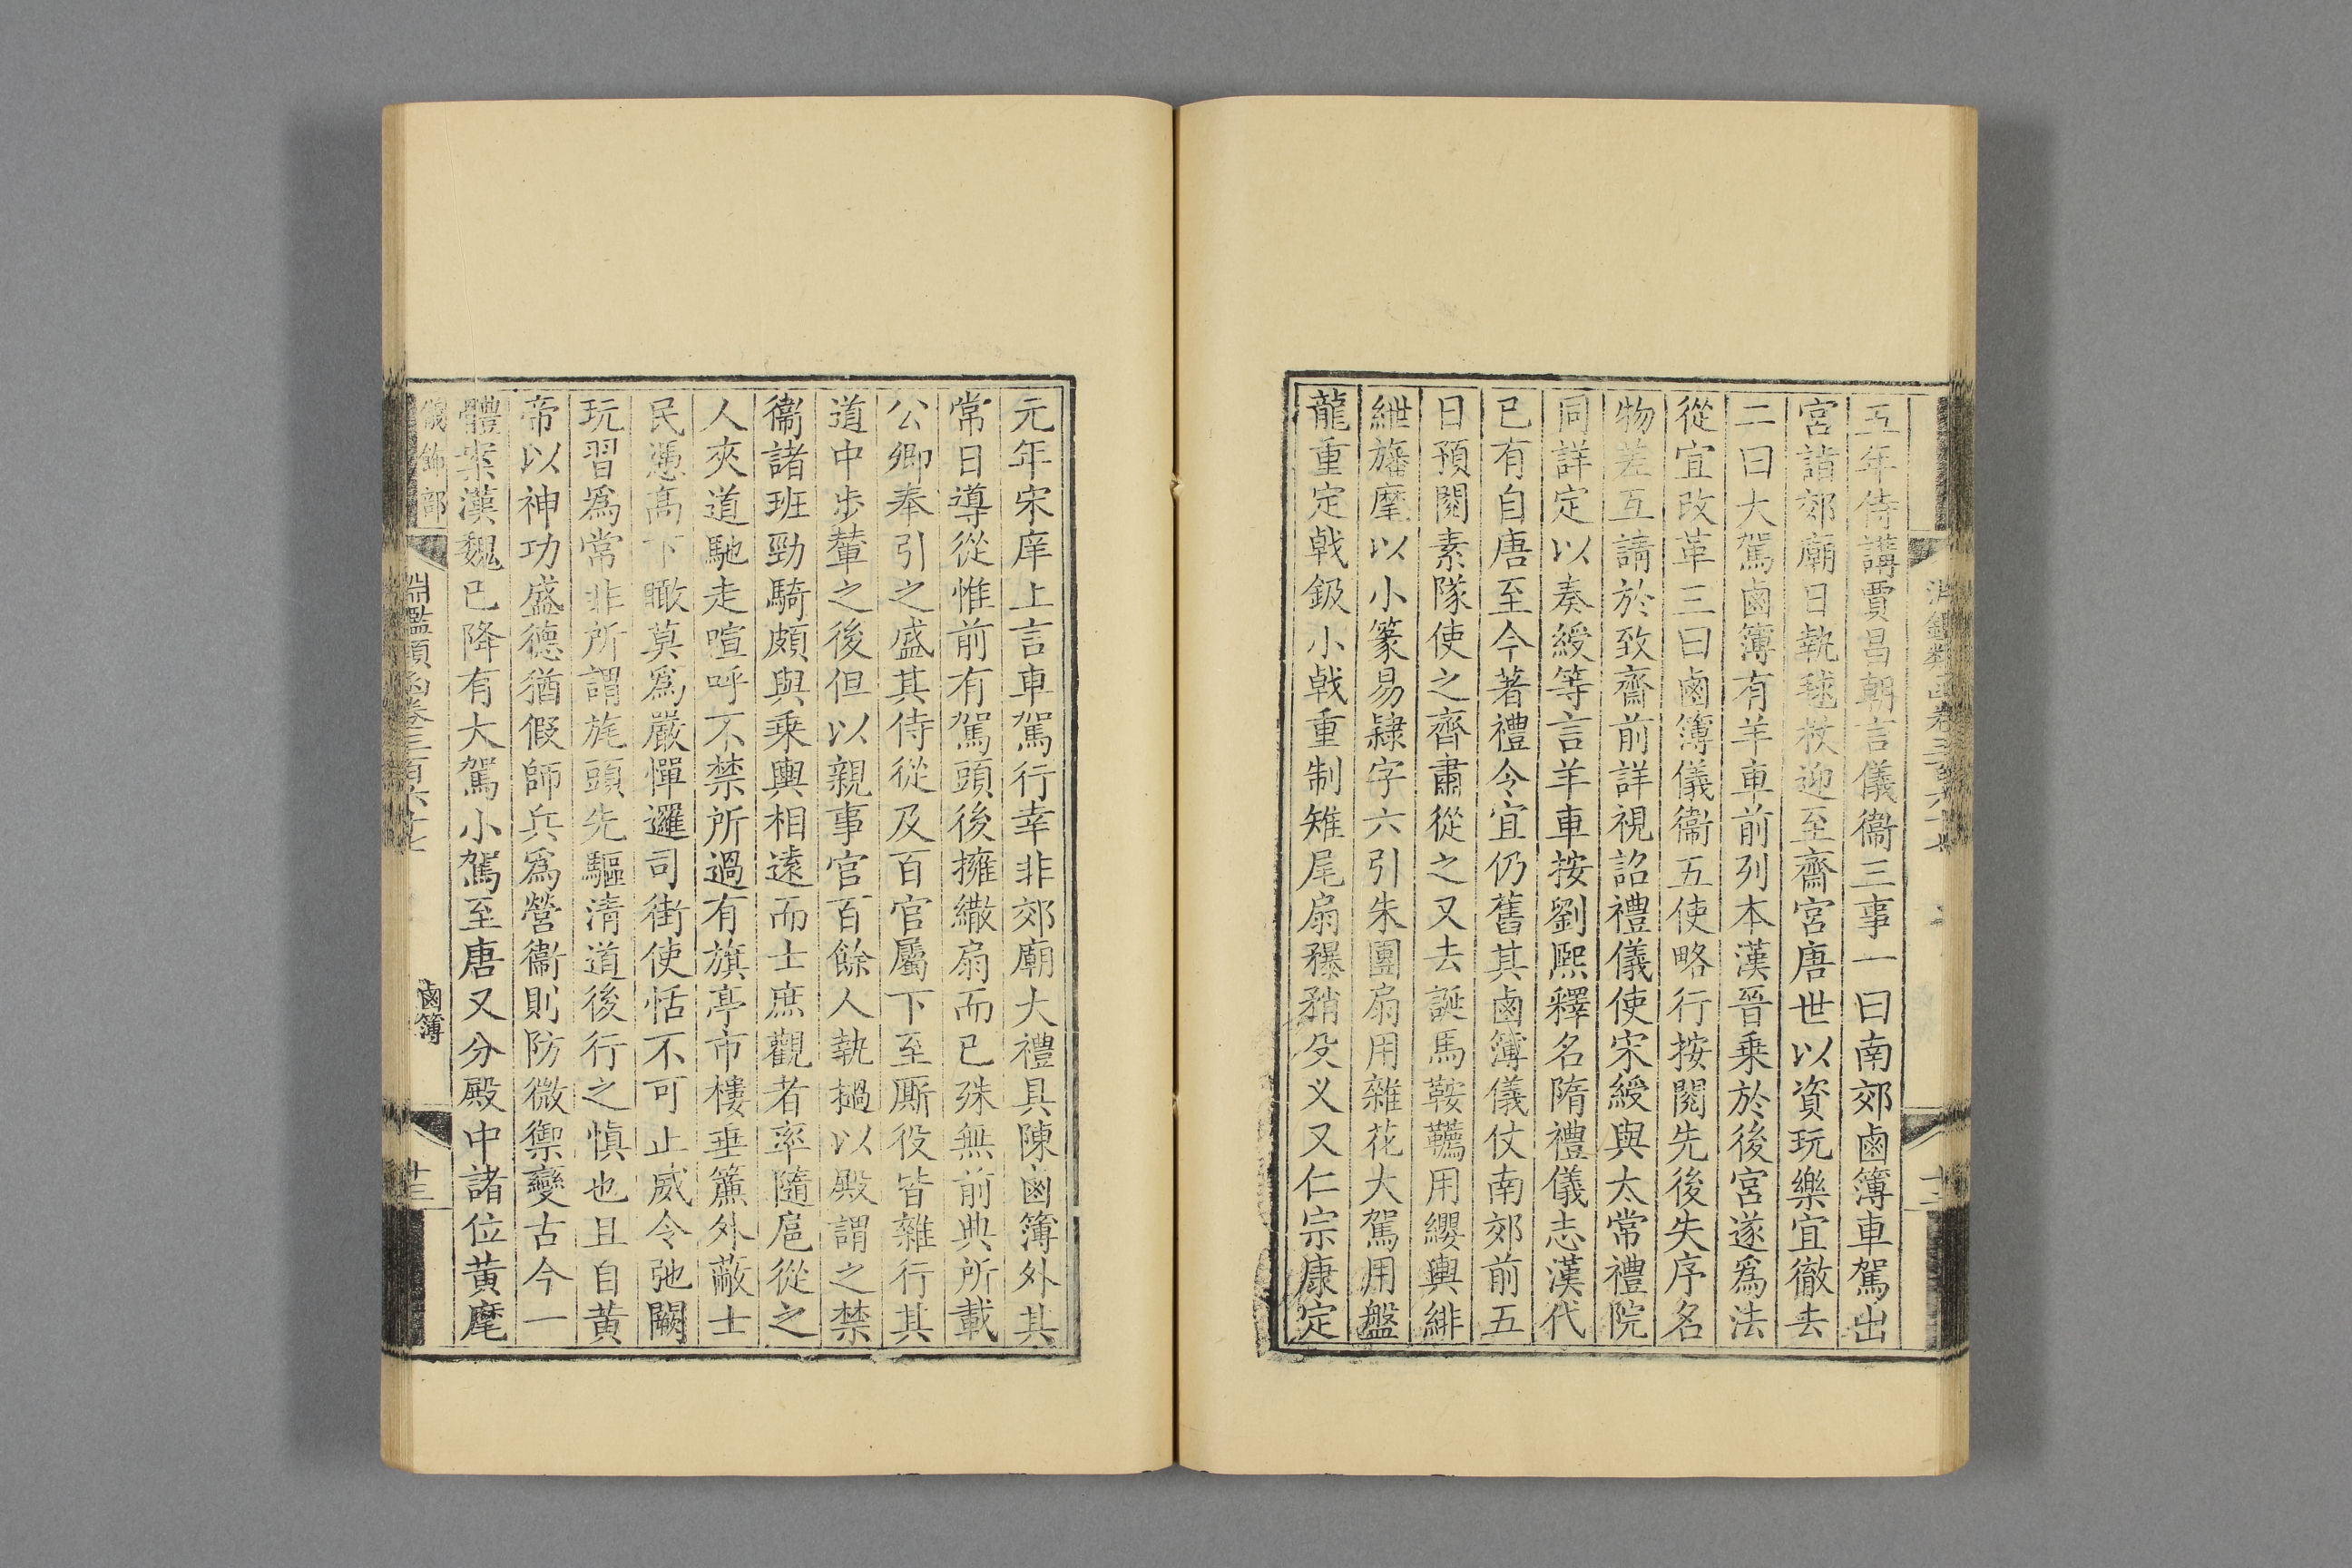 五年侍講賈昌朝言儀衞三事一曰南郊鹵簿車駕出
宮詣郊廟日執毬杖迎至齋宮唐世以資玩樂宜徹去
二曰大駕鹵簿有羊車前列本漢晉乗於後宮遂爲法
從宜改革三曰鹵簿儀衞五使略行按閱先後失序名
物差互請於致齋前詳視詔禮儀使宋綬與太常禮院
同詳定以奏綬等言羊車按劉熙釋名隋禮儀志漢代
已有自唐至今著禮令宜仍舊其鹵簿儀仗南郊前五
日預閱素隊使之齊肅從之又去誕馬鞍韉用纓轡緋
紲旛麾以小篆易隷字六引朱團扇用雜花大駕用盤
龍重定戟鈒小戟重制雉尾扇稃矟殳义又仁宗康定
元年宋庠上言車駕行幸非郊廟大禮具陳鹵簿外其
常日導從惟前有駕頭後擁繖扇而已殊無前典所載
公卿奉引之盛其侍從及百官屬下至厮役皆雜行其
道中步輦之後但以親事官百餘人執撾以殿謂之禁
衞諸班勁騎頗與乗輿相遠而士庶觀者率隨扈從之
人夾道馳走喧呼不禁所過有旗亭市樓垂簾外蔽士
民憑高下瞰莫爲嚴憚邏司街使恬不可止威令弛闕
玩習爲常非所謂旄頭先驅清道後行之愼也且自黄
帝以神功盛德猶假師兵爲營衞則防微禦變古今一
體案漢魏已降有大駕小駕至唐又分殿中諸位黄麾
儀飾部 淵鑑類函卷三百六十七 鹵簿 十三